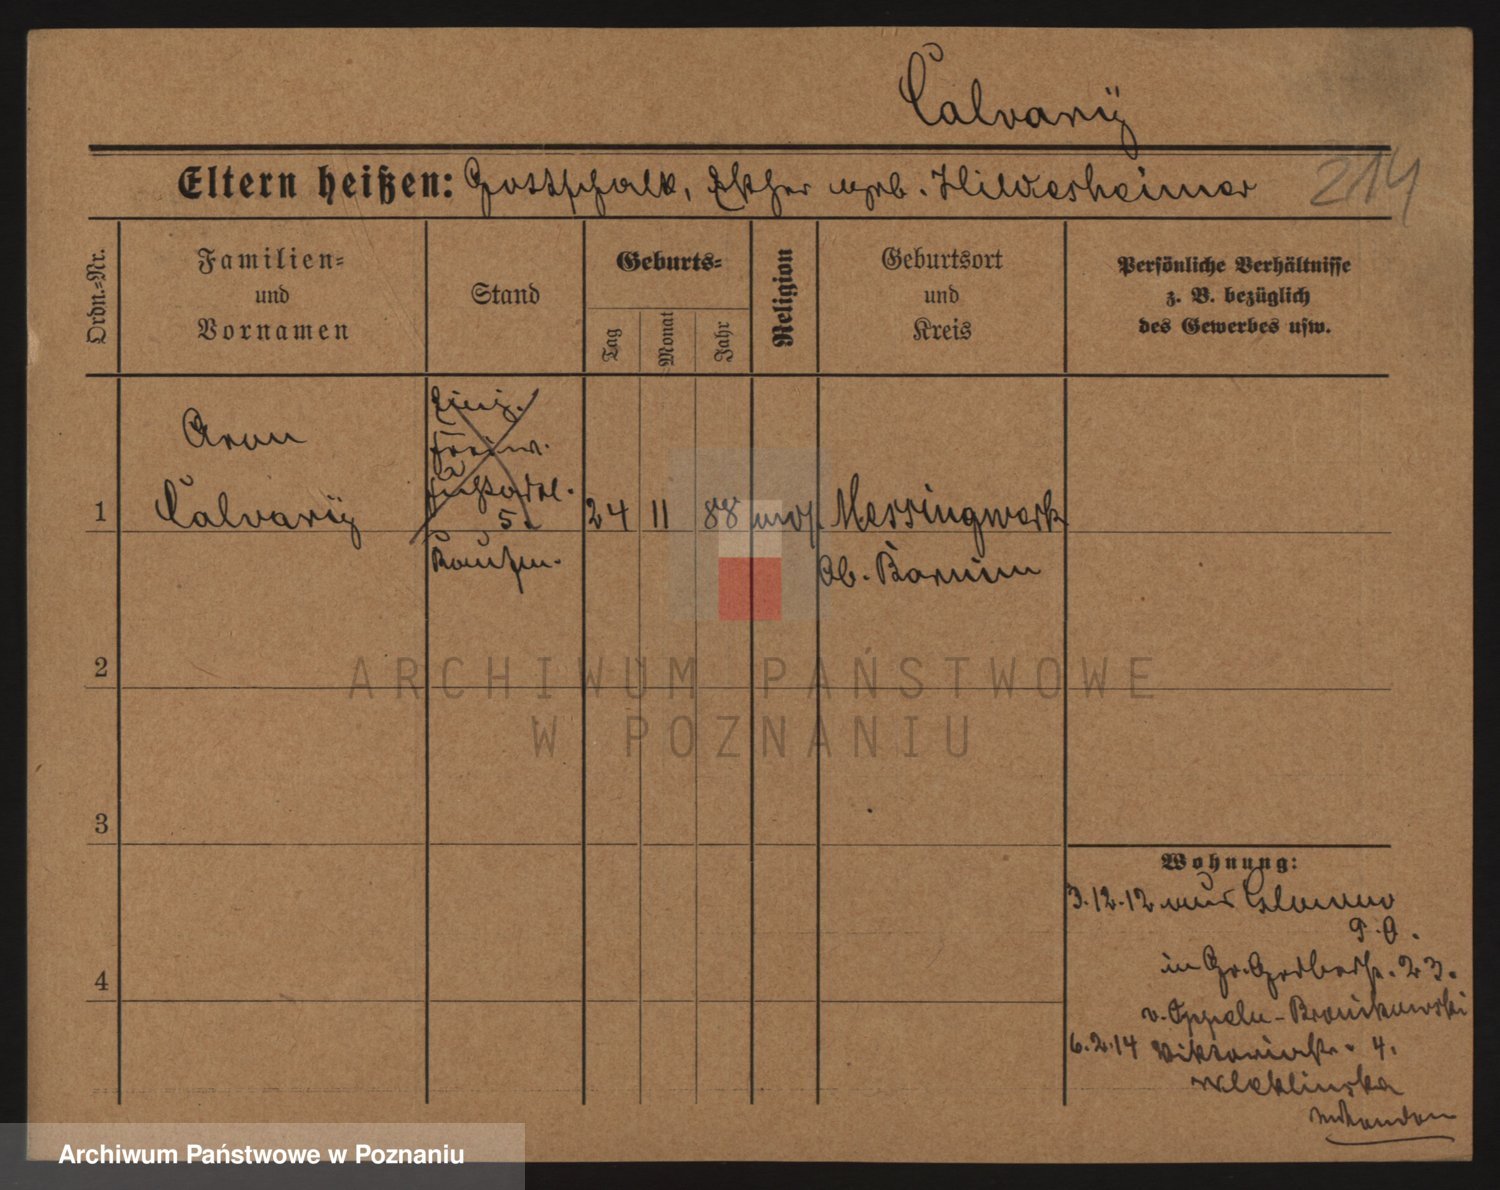 Calvarÿ
214
Eltern heißen: Gottschalk, Esther geb. Hildesheimer
Ordn.-Nr.
Familien-
und
Vornamen
Stand
Geburts-
Tag
Monat
Jahr
Religion
Geburtsort
und
Kreis
Persönliche Verhältnisse
z. B. bezüglich
des Gewerbes usw.
Aron
Einj.
Freiw.
Fußartl.
1 Calvarÿ 5. 24 11 88 mos. Messingwerk
Kaufm. Ob. Barnim
2
ARCHIWUM PAŃSTWOWE
W POZNANIU
3
Wohnung:
3.12.12 aus
in Gr. Gerberstr. 23.
4
v. Oppeln-Bronikowski
6.2.14 Viktoriastr. 4.
Archiwum Państwowe w Poznaniu